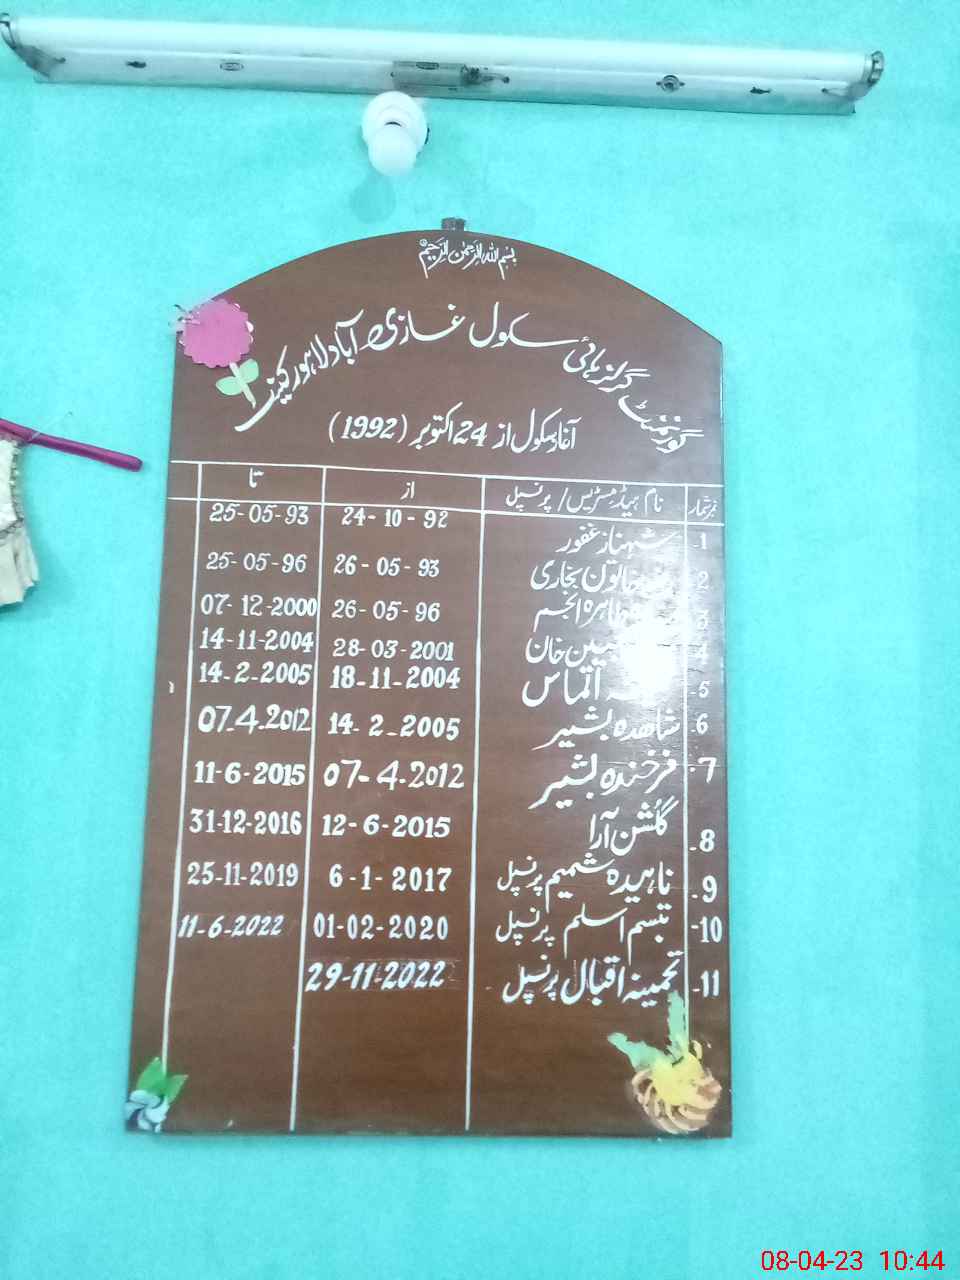 بسم اللہ الرحمن الرحیم
گورنمنٹ گرلز ہائی سکول غازی آباد لاہور کینٹ
آغاز سکول از 24 اکتوبر (1992)
نمبر شمار نام ہیڈ مسٹریس / پرنسپل از تا
1- شہناز غفور 24-10-92 25-05-93
2- خاتون بخاری 26-05-93 25-05-96
3- طاہرہ انجم 26-05-96 07-12-2000
4- خان 28-03-2001 14-11-2004
5- الماس 18-11-2004 14-2-2005
6- شاھدہ بشیر 14-2-2005 07-4-2012
7- فرخندہ بشیر 07-4-2012 11-6-2015
8- گلشن آرا 12-6-2015 31-12-2016
9- ناہیدہ شمیم پرنسپل 6-1-2017 25-11-2019
10- تبسم اسلم پرنسپل 01-02-2020 11-6-2022
11- تحمینہ اقبال پرنسپل 29-11-2022
08-04-23 10:44